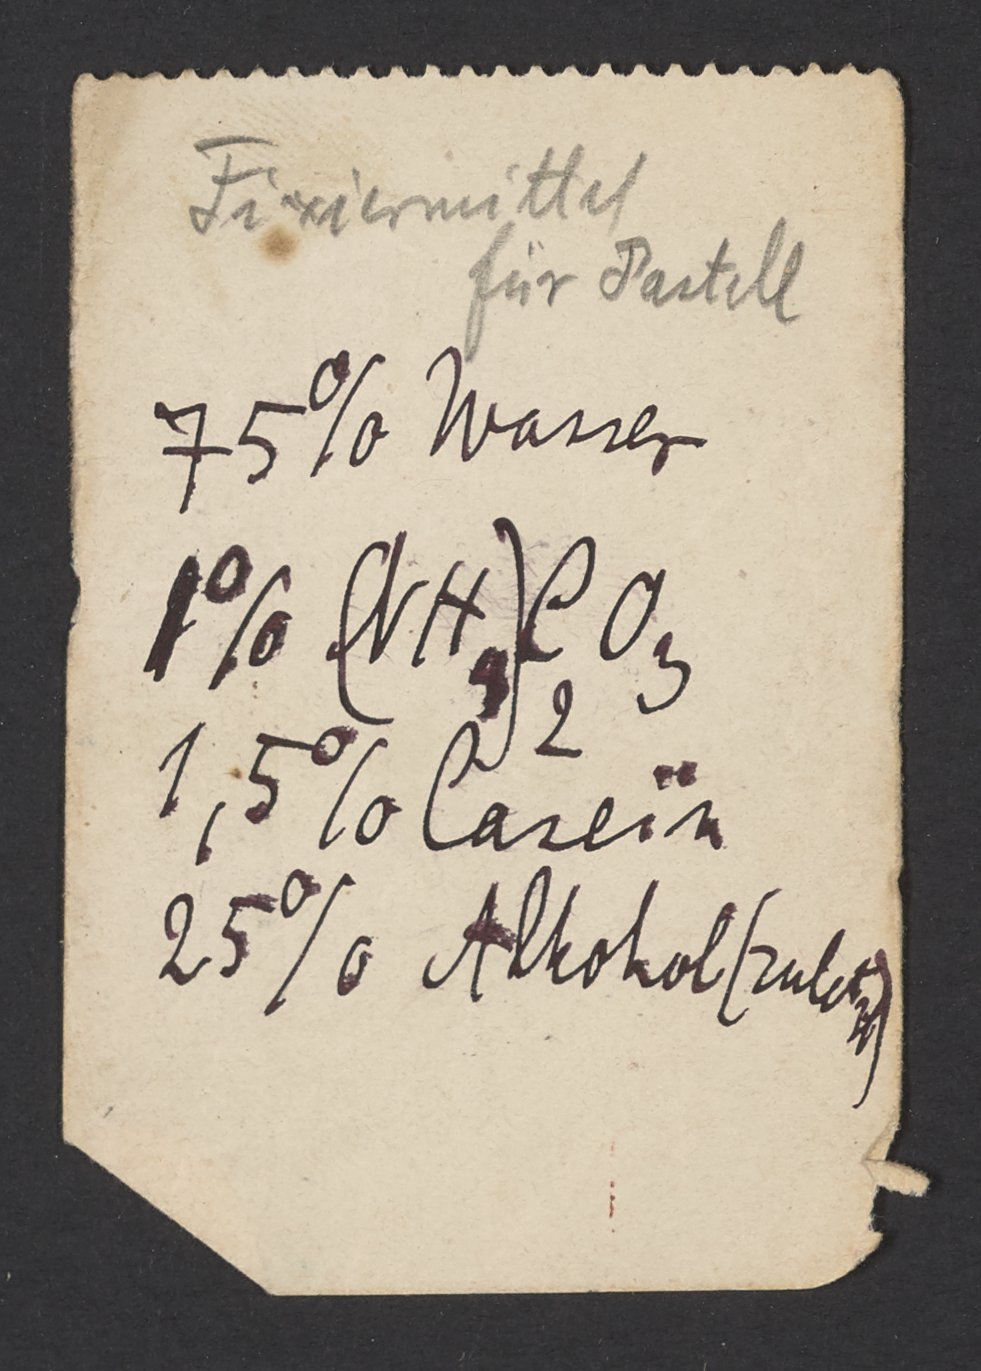 Fixiermittel
für Pastell
75% Wasser
1% (NH₄)₂CO₃
1,5% Caseïn
25% Alkohol (zuletzt)